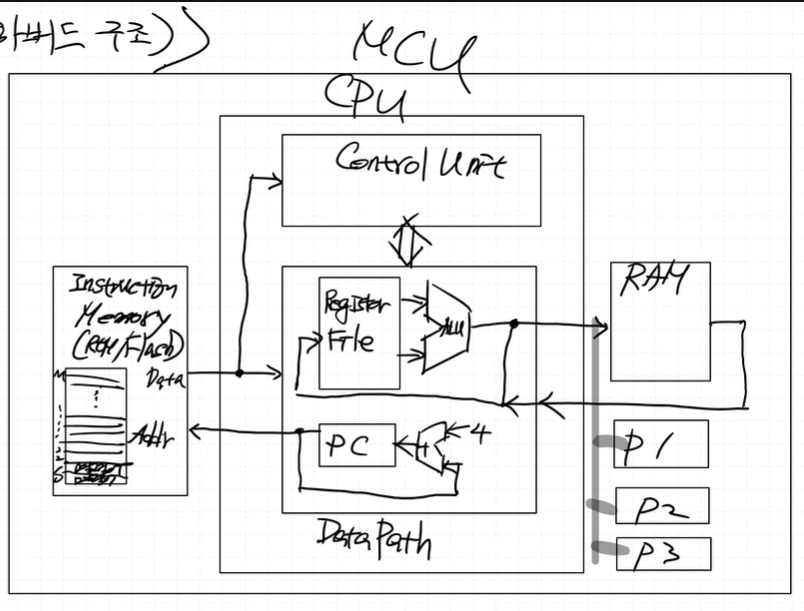 하버드 구조))
MCU
CPU
Control Unit
Instruction
Memory
(ROM/Flash)
Data
Addr
Register
File
ALU
PC
+
4
DataPath
RAM
P1
P2
P3